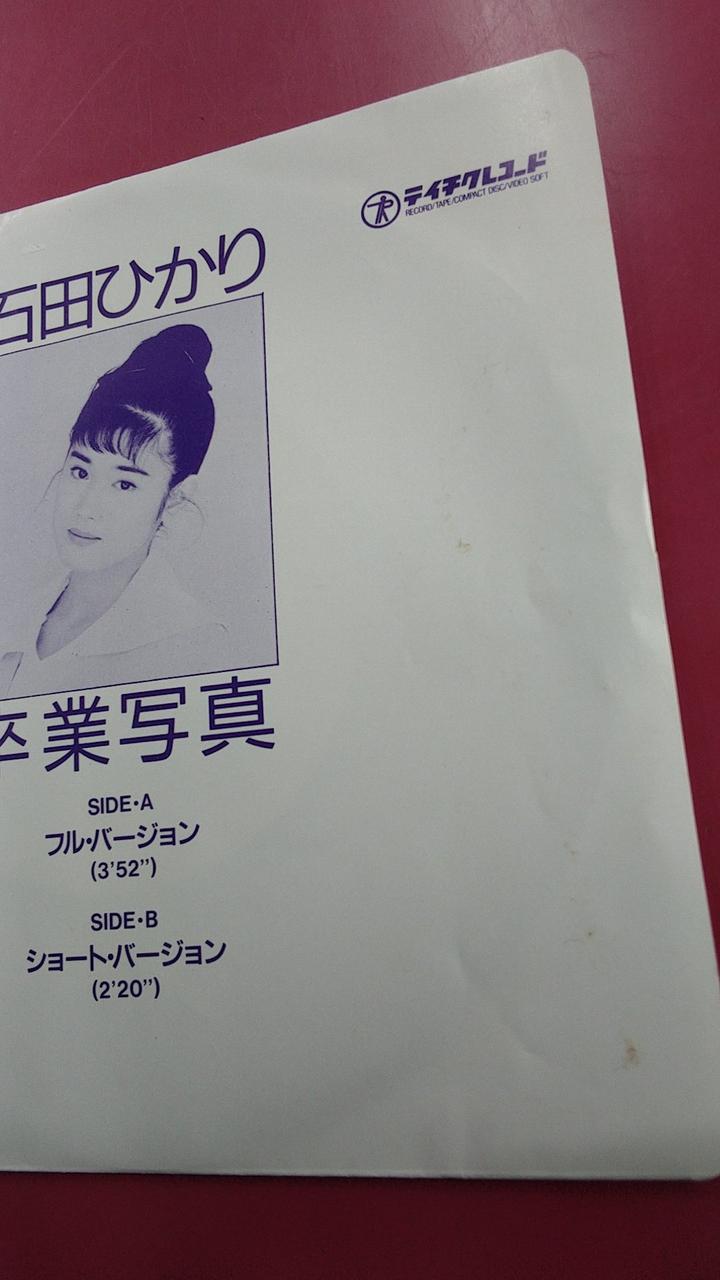 テイチクレコード
RECORD/TAPE/COMPACT DISC/VIDEO SOFT
石田ひかり
卒業写真
SIDE・A
フル・バージョン
(3'52”)
SIDE・B
ショート・バージョン
(2'20”)